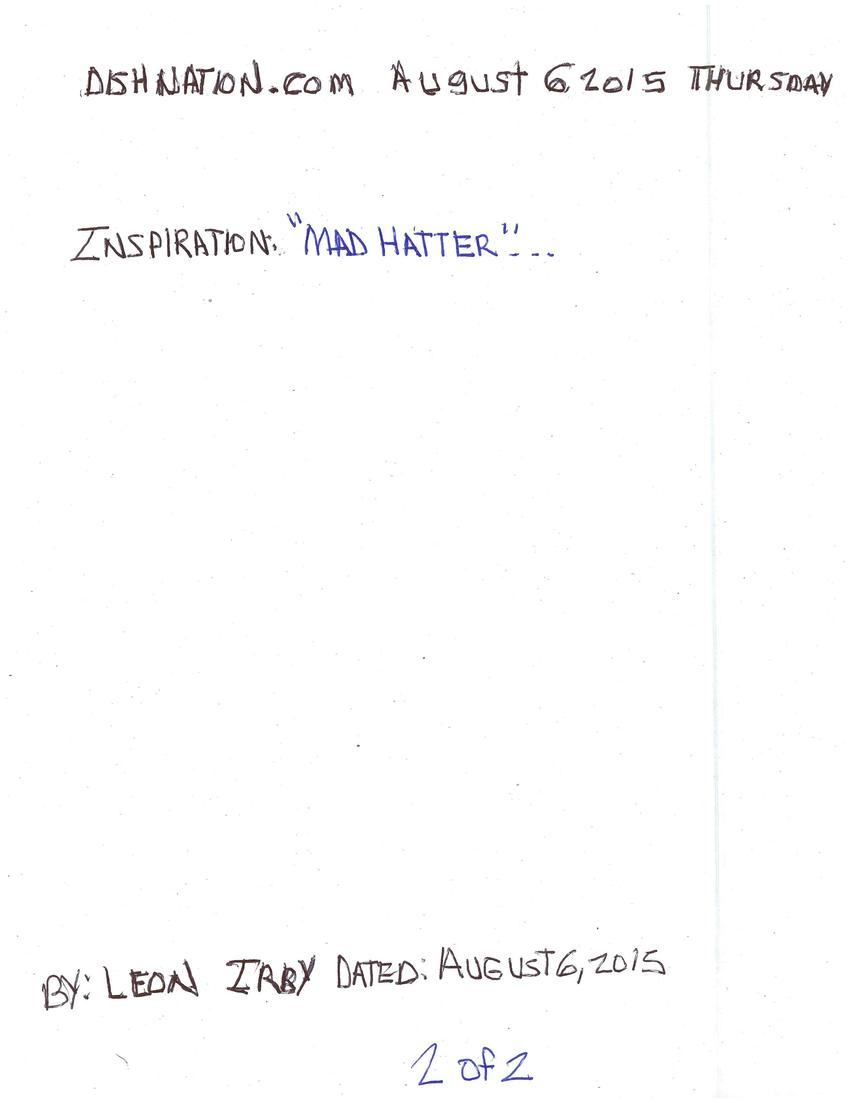 DISHNATION.COM August 6 2015 THURSDAY
INSPIRATION: "MAD HATTER"...
BY: LEON IRBY DATED: AUGUST 6, 2015
2 of 2